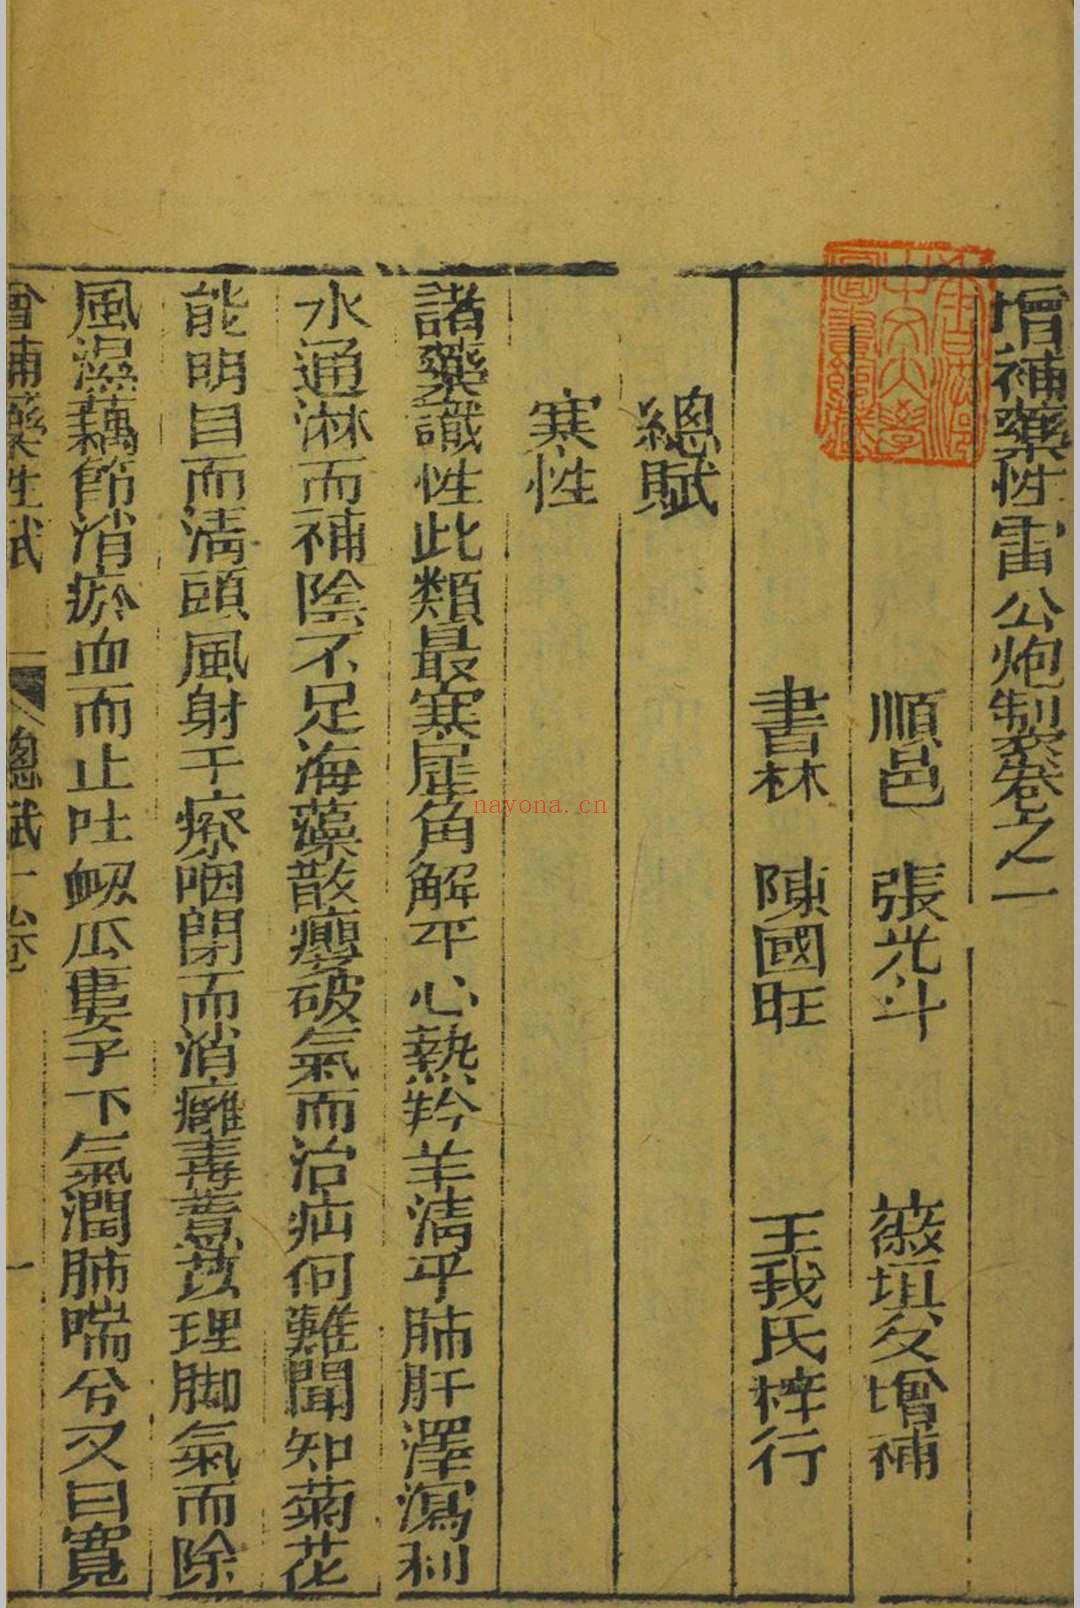 增補藥性雷公炮製卷之一
順邑 張光斗 薇垣父增補
書林 陳國旺 王我氏梓行
總賦
寒性
諸藥識性此類最寒犀角解乎心熱羚羊清乎肺肝澤瀉利
水通淋而補陰不足海藻散癭破氣而治疝何難聞知菊花
能明目而清頭風射干療咽閉而消癰毒薏苡理脚氣而除
風濕藕節消瘀血而止吐衂瓜蔞子下氣潤肺喘兮又曰寬
增補藥性賦 總賦一卷 一
nayona.cn